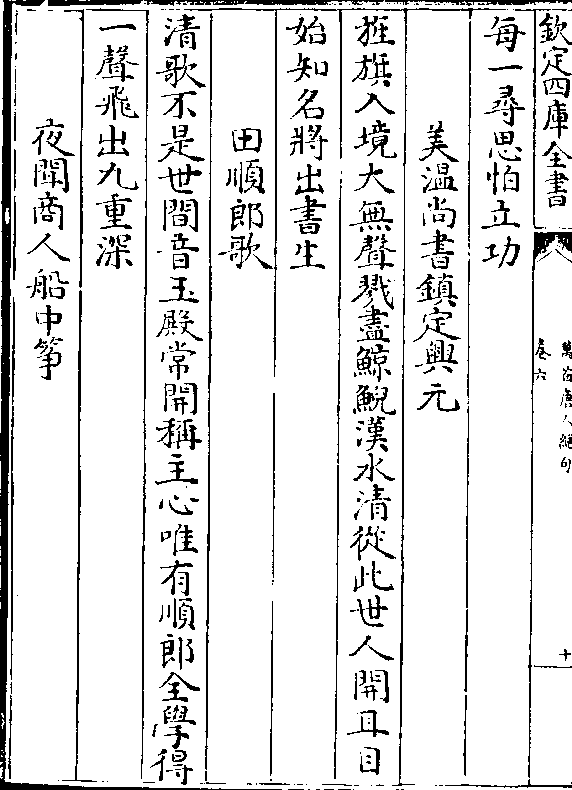 欽定四庫全書
萬首唐人絕句
卷六
十
每一尋思怕立功
美温尚書鎮定興元
旌旗入境犬無聲戮盡鯨鯢漢水清從此世人開耳目
始知名將出書生
田順郎歌
清歌不是世間音玉殿常開稱主心唯有順郎全學得
一聲飛出九重深
夜聞商人船中箏